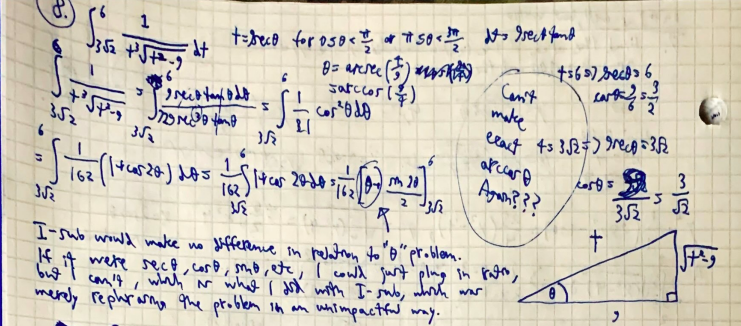 8. ∫_{3√2}^{6} 1/(t³√(t²-9)) dt t=9secθ for 0≤θ<π/2 or π≤θ<3π/2 dt=9secθtanθ
∫_{3√2}^{6} 1/(t³√(t²-9)) = ∫_{3√2}^{6} 9secθtanθdθ/(729sec³θ tanθ) = ∫_{3√2}^{6} 1/81 cos²θdθ
θ=arcsec(t/9)
=arccos(9/t)
t=6=>9secθ=6
cosθ=9/6=3/2
t=3√2=>9secθ=3√2
cosθ=9/3√2=3/√2
Can't
make
exact
arccosθ
Again???
=∫_{3√2}^{6} 1/162(1+cos2θ)dθ=1/162∫_{3√2}^{6}1+cos2θdθ=1/162[θ+sin2θ/2]_{3√2}^{6}
t
√(t²-9)
θ
9
I-sub would make no difference in relation to "θ" problem.
If it were secθ, cosθ, sinθ, etc, I could just plug in ratio,
but I can't, which is what I did with I-sub, which was
merely rephrasing the problem in an unimpactful way.